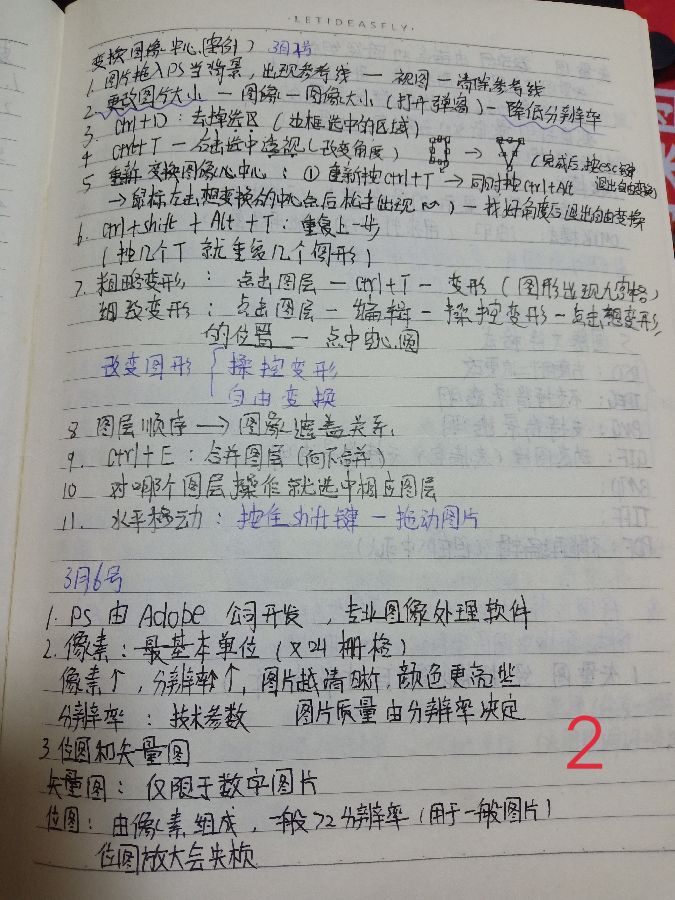 ·LETIDEASFLY·
变换图像中心(案例) 3月2号
1. 图片拖入PS当背景，出现参考线 — 视图 — 清除参考线
2. 更改图片大小 — 图像 — 图像大小(打开弹窗) — 降低分辨率
3. ctrl+D：去掉选区(边框选中的区域)
4 Ctrl+T — 右击选中透视(改变角度) → (完成后,按esc键
退出自由变换)
5 重新变换图像心中心：① 重新按ctrl+T → 同时按ctrl+Alt
→ 鼠标左击想变换的中心点后松手出现 ) — 找好角度后退出自由变换
6. ctrl+shift + Alt + T：重复上一步
(按几个T 就重复几个图形)
7. 粗略变形： 点击图层 — ctrl+T — 变形 (图形出现九宫格)
细致变形： 点击图层 — 编辑 — 操控变形 — 点击想变形
的位置 — 点中心圆
改变图形 { 操控变形
自由变换
8 图层顺序 → 图像遮盖关系.
9. Ctrl+E：合并图层(向下合并)
10 对哪个图层操作就选中相应图层
11. 水平移动：按住shift键 — 拖动图片
3月6号
1. PS 由 Adobe 公司开发，专业图像处理软件
2. 像素：最基本单位(又叫栅格)
像素↑，分辨率↑，图片越清晰,颜色更亮些
分辨率：技术参数 图片质量由分辨率决定
3.位图和矢量图
矢量图：仅限于数字图片
位图：由像素组成，一般72分辨率(用于一般图片)
位图放大会失桢
2